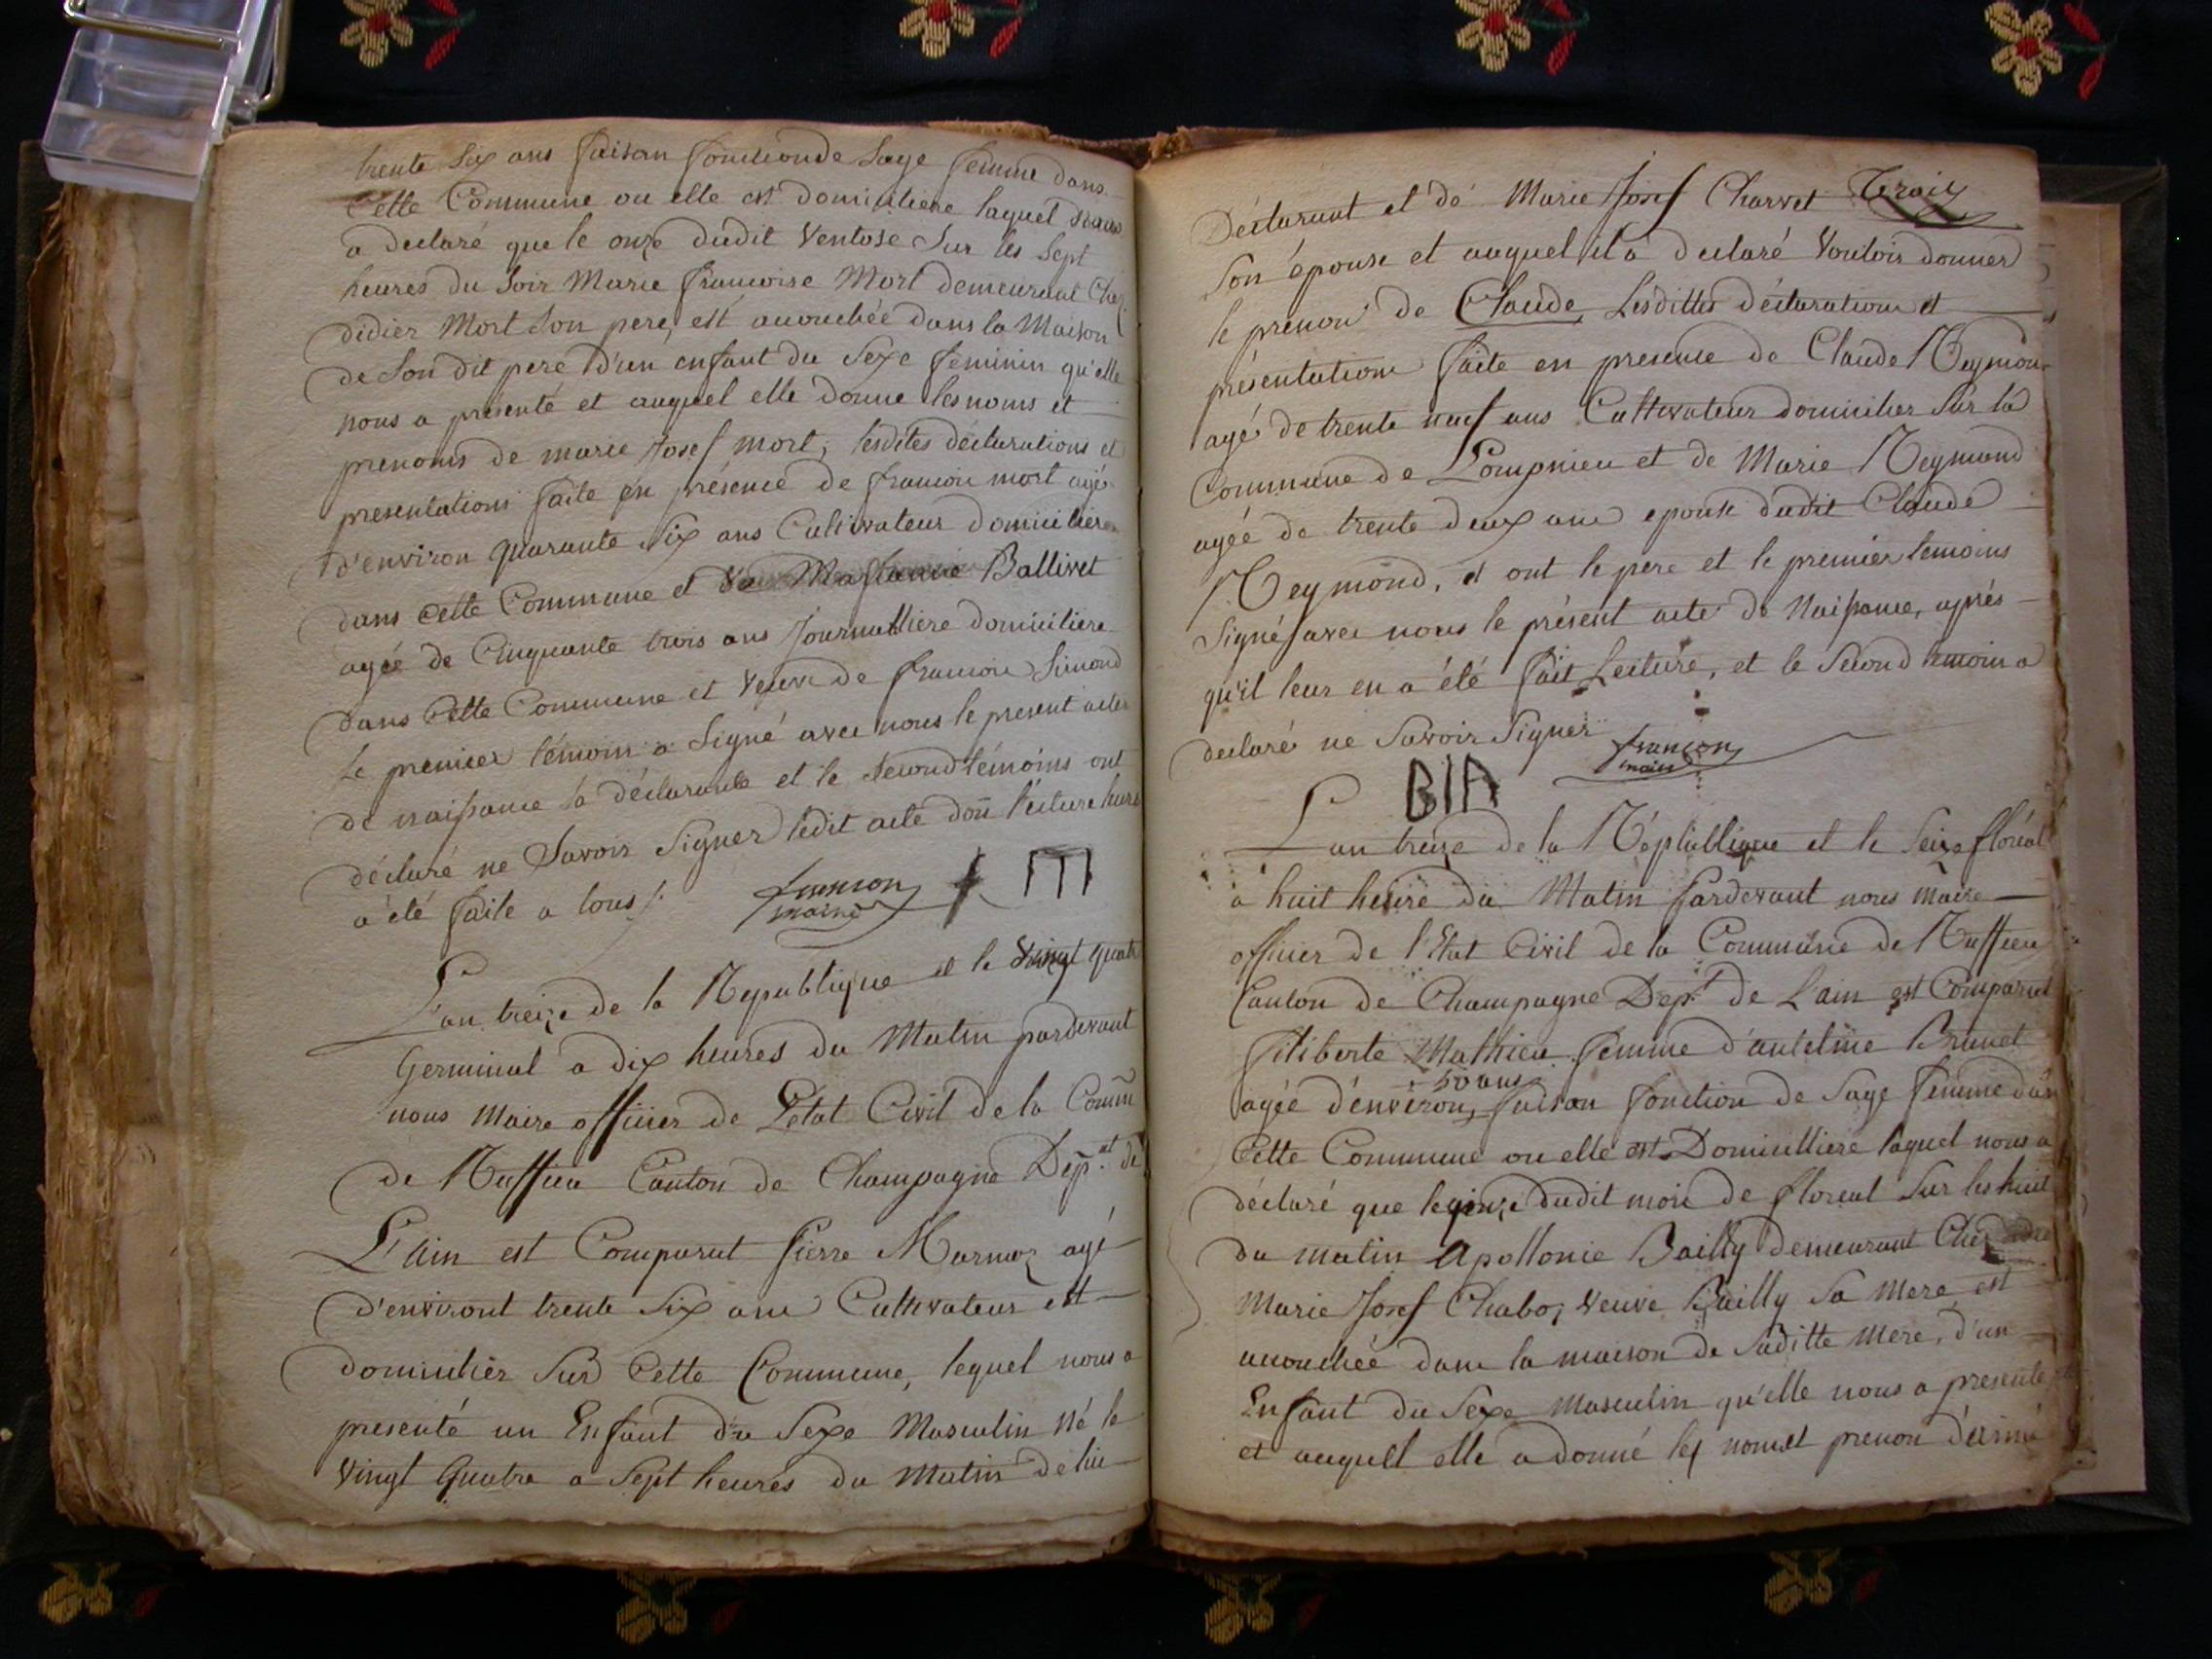 trente six ans faisan fonctionde sage femme dans
cette Commune ou elle est domiciliere laquel nous
a declaré que le onze dudit Ventose sur les sept
heures du soir Marie francoise Mort demeurant Chez
didier Mort son pere, est acouchée dans la Maison
de son dit pere d'un enfant du sexe feminin qu'elle
nous a présenté et auquel elle donne les noms et
prenoms de marie Josef mort, lesdites déclarations et
presentations faite en présence de francois mort agé
d'environ quarante six ans Cultivateur domicilier
dans cette Commune et Ballivet
agée de Cinquante trois ans Journalliere domiciliere
dans Cette Commune et Veuve de francois Simond
Le premier témoin a Signé avec nous le present acte
de naissance la déclarante et le second témoins ont
déclaré ne Savoir Signer ledit acte don lecture leurs
a été faite a tous
francon
maire
L'an treize de la Republique et le vingt quatre
Germinal a dix heures du Matin pardevant
nous Maire officier de L'état Civil de la Comm
de Ruffieu Canton de Champagne Dep.t de
L'Ain est Comparut Pierre Marnoz agé
d'environt trente six ans Cultivateur et
domicilier sur Cette Commune, lequel nous a
presenté un Enfant du Sexe Masculin Né le
Vingt Quatre a Sept heures du Matin de lui
Déclarant et de Marie Josef Charvet
Son épouse et auquel il a declaré Vouloir donner
le prenom de Claude Lesdittes déclaration et
présentation faite en presence de Claude Reymond
agé de trente neuf ans Cultivateur domicilier sur la
Commune de Lompnieu et de Marie Reymond
agée de trente deux ans epouse dudit Claude
Reymond, et ont le pere et le premier temoins
Signé avec nous le présent acte de Naissance, après
qu'il leur en a été fait Lecture, et le Second temoin a
declaré ne Savoir Signer
francon
maire
BIA
L'an treize de la République et le Seize floréal
a huit heure du Matin Pardevant nous Maire
officier de l'Etat Civil de la Commune de Ruffieu
Canton de Champagne Dep.t de L'ain est Comparut
filiberte Mathieu femme d'antelme Brunet
50 ans
agée d'environ, faisan fonction de Sage femme dan
Cette Commune ou elle est Domicilliere laquel nous a
déclaré que le quinze dudit mois de floreal Sur les huit
du matin Apollonie Bailly demeurant Chez
Marie Josef Chaboz Veuve Bailly Sa Mere est
acouchée dans la maison de Saditte Mere, d'un
Enfant du Sexe Masculin qu'elle nous a presenté
et auquel elle a donné les nom et prenon